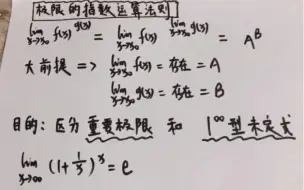 极限的指数运算法则
lim_{x→x₀} f(x)^{g(x)} = lim_{x→x₀} f(x)^{lim_{x→x₀} g(x)} = A^B
大前提 => lim_{x→x₀} f(x) = 存在 = A
lim_{x→x₀} g(x) = 存在 = B
目的: 区分 重要极限 和 1^∞ 型未定式
lim_{x→∞} (1+1/x)^x = e